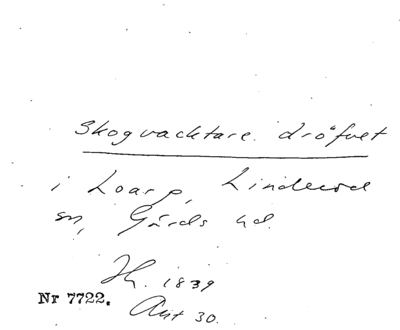 Skogvacktare. dröfvet
i Loarp, Linderöd
sn, Gärds hd.
Hz. 1839
Nr 7722.
Ant 30.